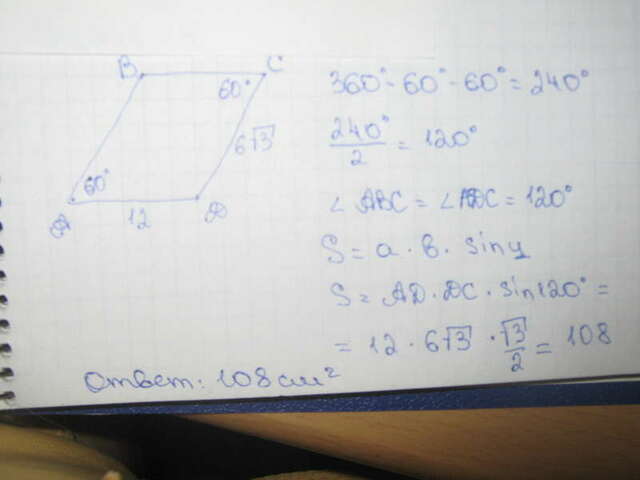 B C
60°
6√3
60°
A 12 D
360° - 60° - 60° = 240°
240°/2 = 120°
∠ABC = ∠ADC = 120°
S = a · b · sin γ
S = AD · DC · sin 120° =
= 12 · 6√3 · √3/2 = 108
Ответ: 108 см²